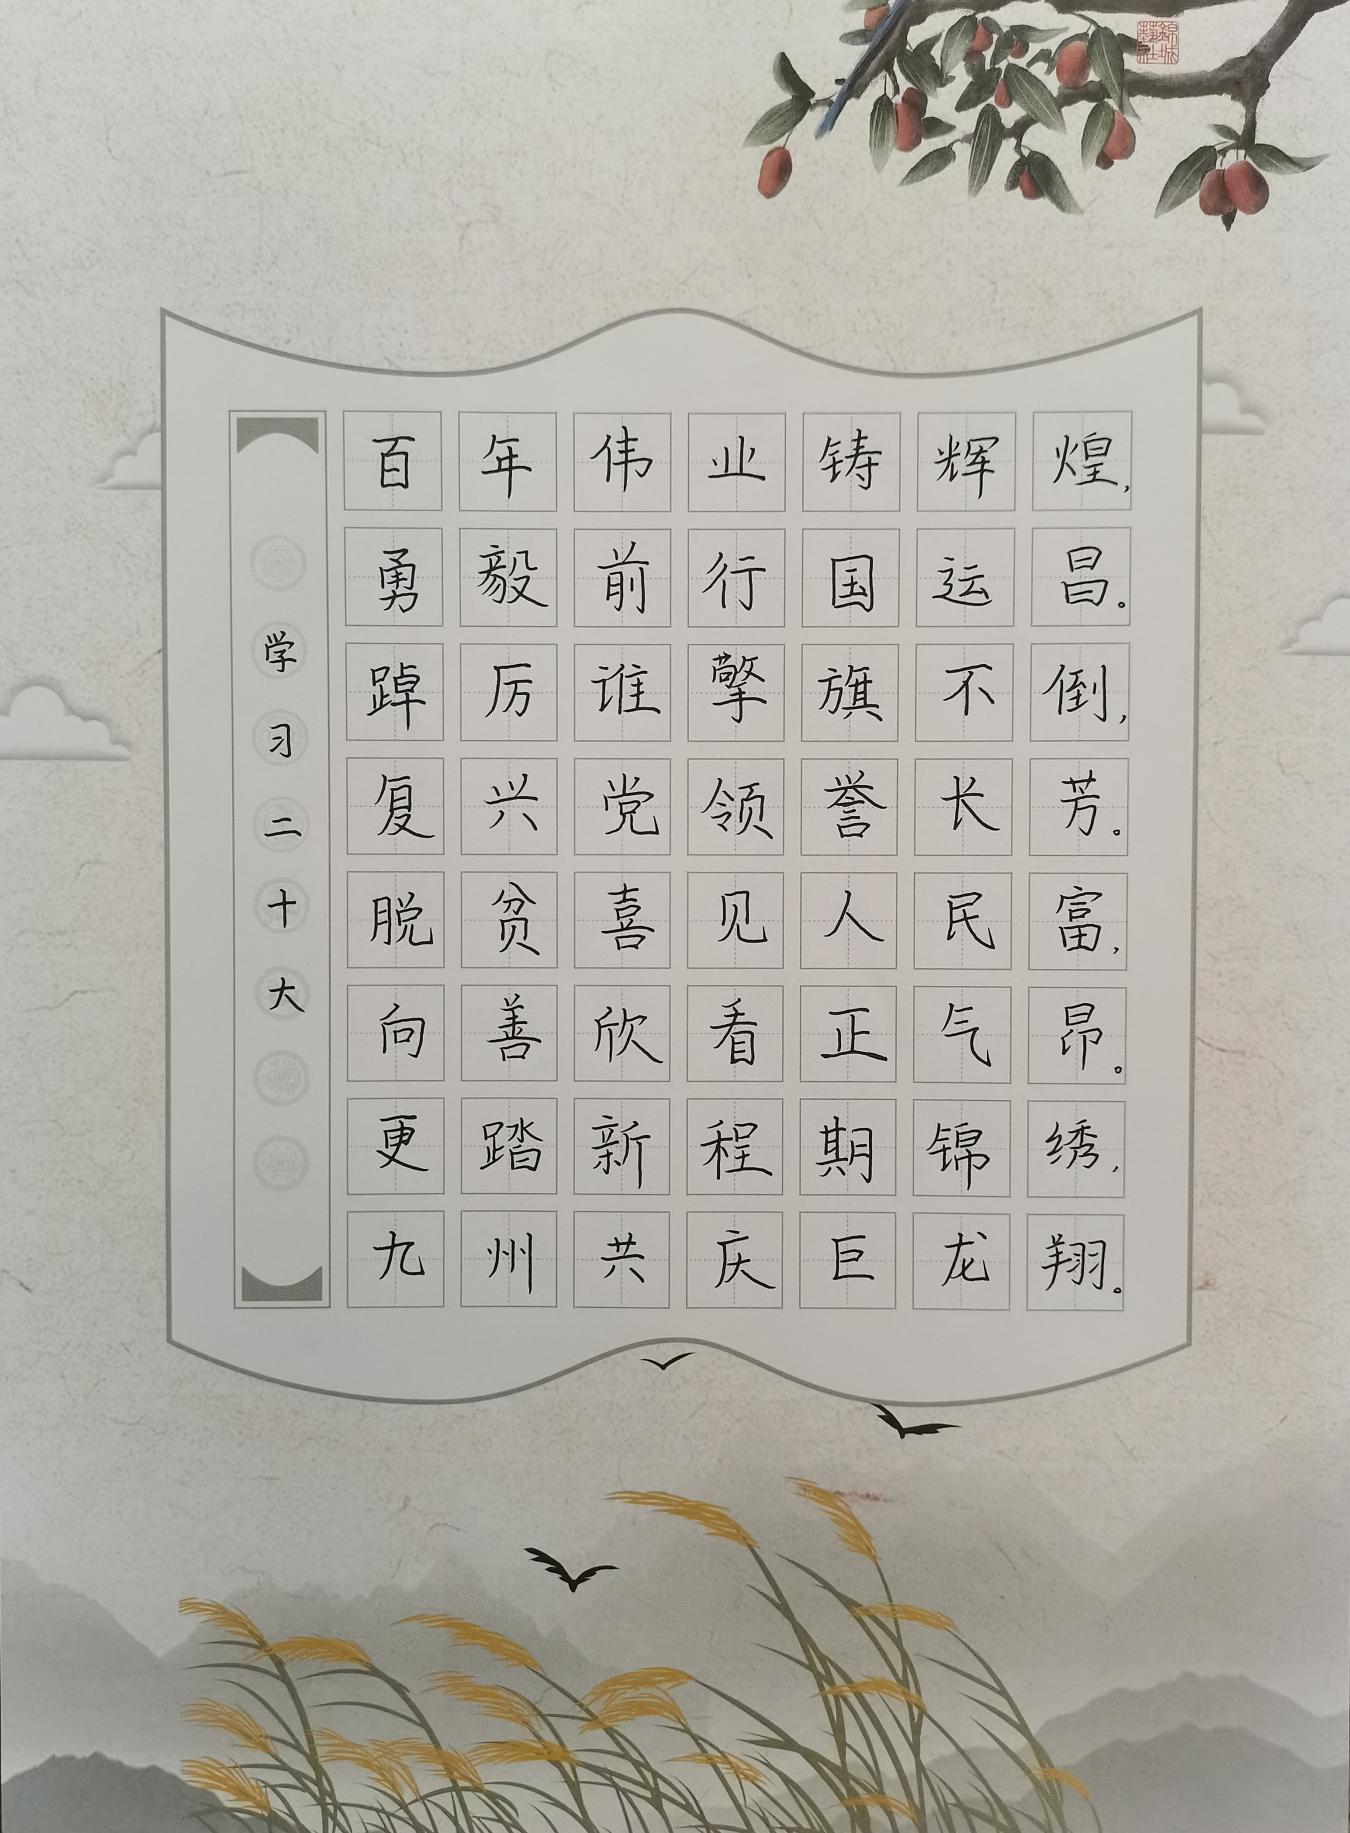 学习二十大
百年伟业铸辉煌,
勇毅前行国运昌。
踔厉谁擎旗不倒,
复兴党领誉长芳。
脱贫喜见人民富,
向善欣看正气昂。
更踏新程期锦绣,
九州共庆巨龙翔。